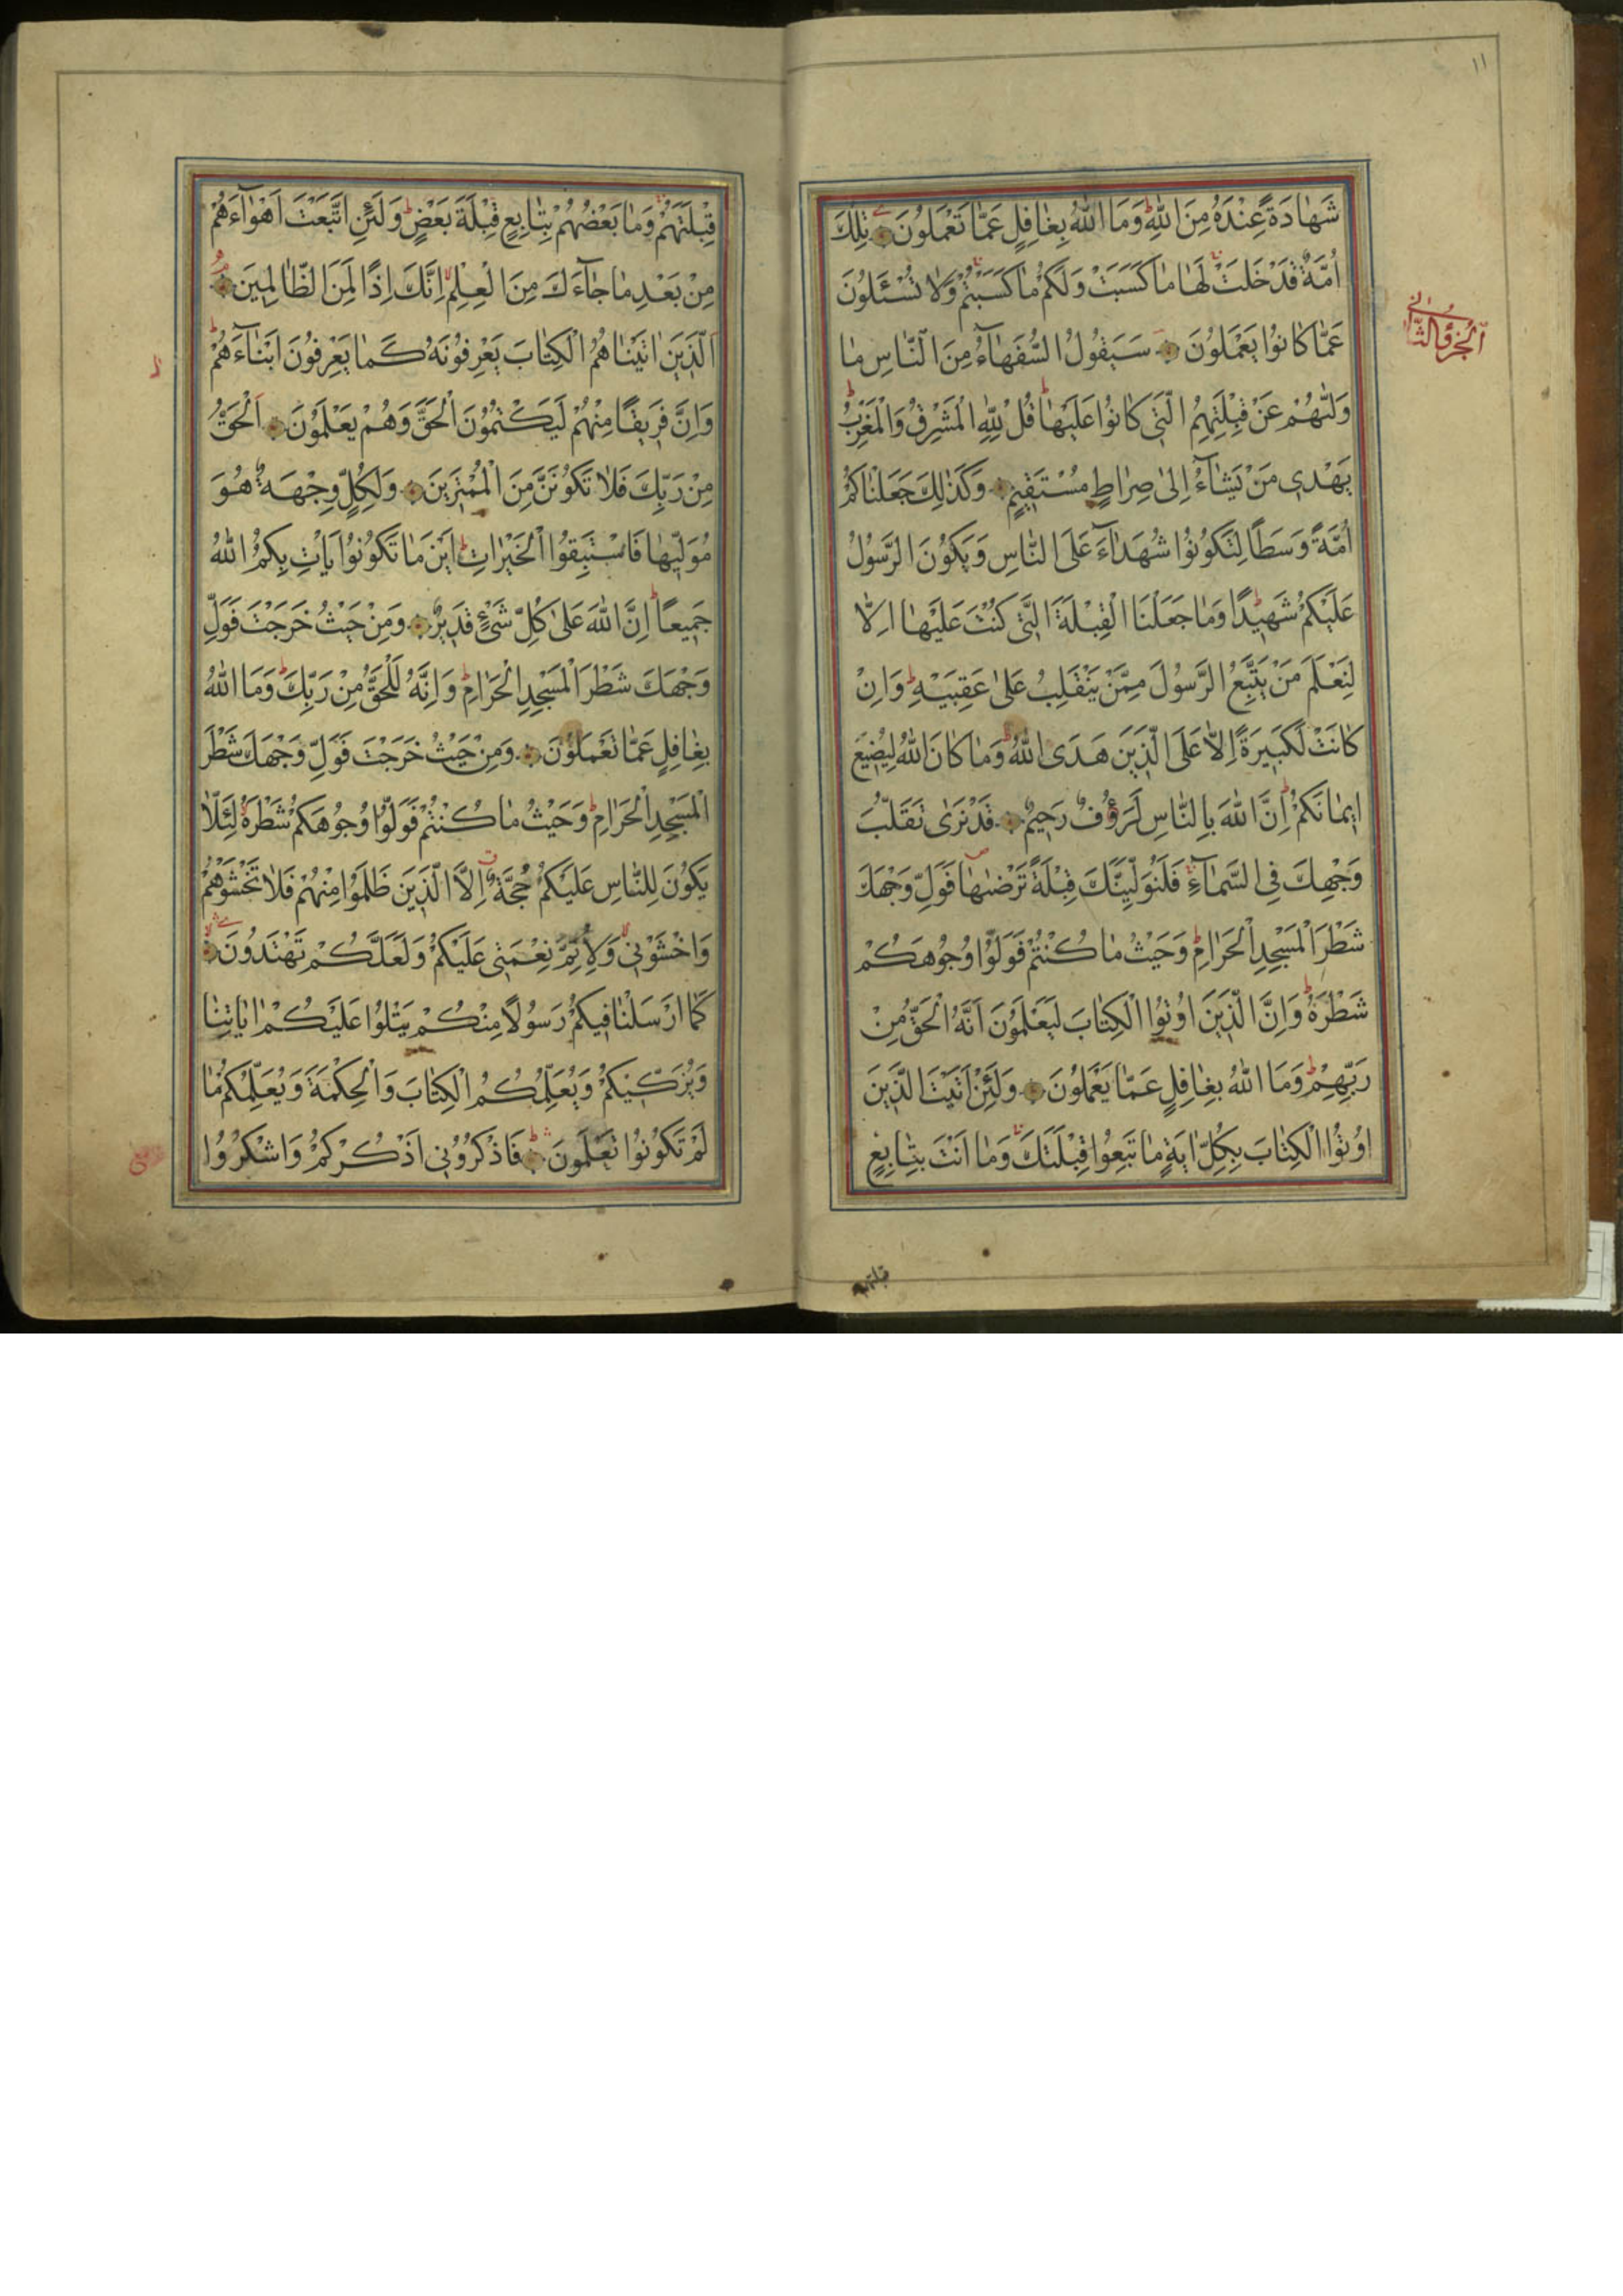 ١١
شَهَادَةً عِنْدَهُ مِنَ اللّٰهِ وَمَا اللّٰهُ بِغَافِلٍ عَمَّا تَعْمَلُونَ تِلْكَ
اُمَّةٌ قَدْ خَلَتْ لَهَا مَا كَسَبَتْ وَلَكُمْ مَا كَسَبْتُمْ وَلَا تُسْئَلُونَ
عَمَّا كَانُوا يَعْمَلُونَ سَيَقُولُ السُّفَهَآءُ مِنَ النَّاسِ مَا
الجزؤ الثانى
وَلّٰىهُمْ عَنْ قِبْلَتِهِمُ الَّتِى كَانُوا عَلَيْهَا قُلْ لِلّٰهِ الْمَشْرِقُ وَالْمَغْرِبُ
يَهْدِى مَنْ يَشَآءُ اِلٰى صِرَاطٍ مُسْتَقِيمٍ وَكَذٰلِكَ جَعَلْنَاكُمْ
اُمَّةً وَسَطًا لِتَكُونُوا شُهَدَآءَ عَلَى النَّاسِ وَيَكُونَ الرَّسُولُ
عَلَيْكُمْ شَهِيدًا وَمَا جَعَلْنَا الْقِبْلَةَ الَّتِى كُنْتَ عَلَيْهَا اِلَّا
لِنَعْلَمَ مَنْ يَتَّبِعُ الرَّسُولَ مِمَّنْ يَنْقَلِبُ عَلٰى عَقِبَيْهِ وَاِنْ
كَانَتْ لَكَبِيرَةً اِلَّا عَلَى الَّذِينَ هَدَى اللّٰهُ وَمَا كَانَ اللّٰهُ لِيُضِيعَ
اِيمَانَكُمْ اِنَّ اللّٰهَ بِالنَّاسِ لَرَؤُفٌ رَحِيمٌ قَدْ نَرٰى تَقَلُّبَ
وَجْهِكَ فِى السَّمَآءِ فَلَنُوَلِّيَنَّكَ قِبْلَةً تَرْضٰىهَا فَوَلِّ وَجْهَكَ
شَطْرَ الْمَسْجِدِ الْحَرَامِ وَحَيْثُ مَا كُنْتُمْ فَوَلُّوا وُجُوهَكُمْ
شَطْرَهُ وَاِنَّ الَّذِينَ اُوتُوا الْكِتَابَ لَيَعْلَمُونَ اَنَّهُ الْحَقُّ مِنْ
رَبِّهِمْ وَمَا اللّٰهُ بِغَافِلٍ عَمَّا يَعْمَلُونَ وَلَئِنْ اَتَيْتَ الَّذِينَ
اُوتُوا الْكِتَابَ بِكُلِّ اٰيَةٍ مَا تَبِعُوا قِبْلَتَكَ وَمَا اَنْتَ بِتَابِعٍ
قبلتهم
قِبْلَتَهُمْ وَمَا بَعْضُهُمْ بِتَابِعٍ قِبْلَةَ بَعْضٍ وَلَئِنِ اتَّبَعْتَ اَهْوَآءَهُمْ
مِنْ بَعْدِ مَا جَآءَكَ مِنَ الْعِلْمِ اِنَّكَ اِذًا لَمِنَ الظَّالِمِينَ
اَلَّذِينَ اٰتَيْنَاهُمُ الْكِتَابَ يَعْرِفُونَهُ كَمَا يَعْرِفُونَ اَبْنَآءَهُمْ
وَاِنَّ فَرِيقًا مِنْهُمْ لَيَكْتُمُونَ الْحَقَّ وَهُمْ يَعْلَمُونَ اَلْحَقُّ
مِنْ رَبِّكَ فَلَا تَكُونَنَّ مِنَ الْمُمْتَرِينَ وَلِكُلٍّ وِجْهَةٌ هُوَ
مُوَلِّيهَا فَاسْتَبِقُوا الْخَيْرَاتِ اَيْنَ مَا تَكُونُوا يَأْتِ بِكُمُ اللّٰهُ
جَمِيعًا اِنَّ اللّٰهَ عَلٰى كُلِّ شَىْءٍ قَدِيرٌ وَمِنْ حَيْثُ خَرَجْتَ فَوَلِّ
وَجْهَكَ شَطْرَ الْمَسْجِدِ الْحَرَامِ وَاِنَّهُ لَلْحَقُّ مِنْ رَبِّكَ وَمَا اللّٰهُ
بِغَافِلٍ عَمَّا تَعْمَلُونَ وَمِنْ حَيْثُ خَرَجْتَ فَوَلِّ وَجْهَكَ شَطْرَ
الْمَسْجِدِ الْحَرَامِ وَحَيْثُ مَا كُنْتُمْ فَوَلُّوا وُجُوهَكُمْ شَطْرَهُ لِئَلَّا
يَكُونَ لِلنَّاسِ عَلَيْكُمْ حُجَّةٌ اِلَّا الَّذِينَ ظَلَمُوا مِنْهُمْ فَلَا تَخْشَوْهُمْ
وَاخْشَوْنِى وَلِاُتِمَّ نِعْمَتِى عَلَيْكُمْ وَلَعَلَّكُمْ تَهْتَدُونَ
كَمَا اَرْسَلْنَا فِيكُمْ رَسُولًا مِنْكُمْ يَتْلُوا عَلَيْكُمْ اٰيَاتِنَا
وَيُزَكِّيكُمْ وَيُعَلِّمُكُمُ الْكِتَابَ وَالْحِكْمَةَ وَيُعَلِّمُكُمْ مَا
لَمْ تَكُونُوا تَعْلَمُونَ فَاذْكُرُونِى اَذْكُرْكُمْ وَاشْكُرُوا